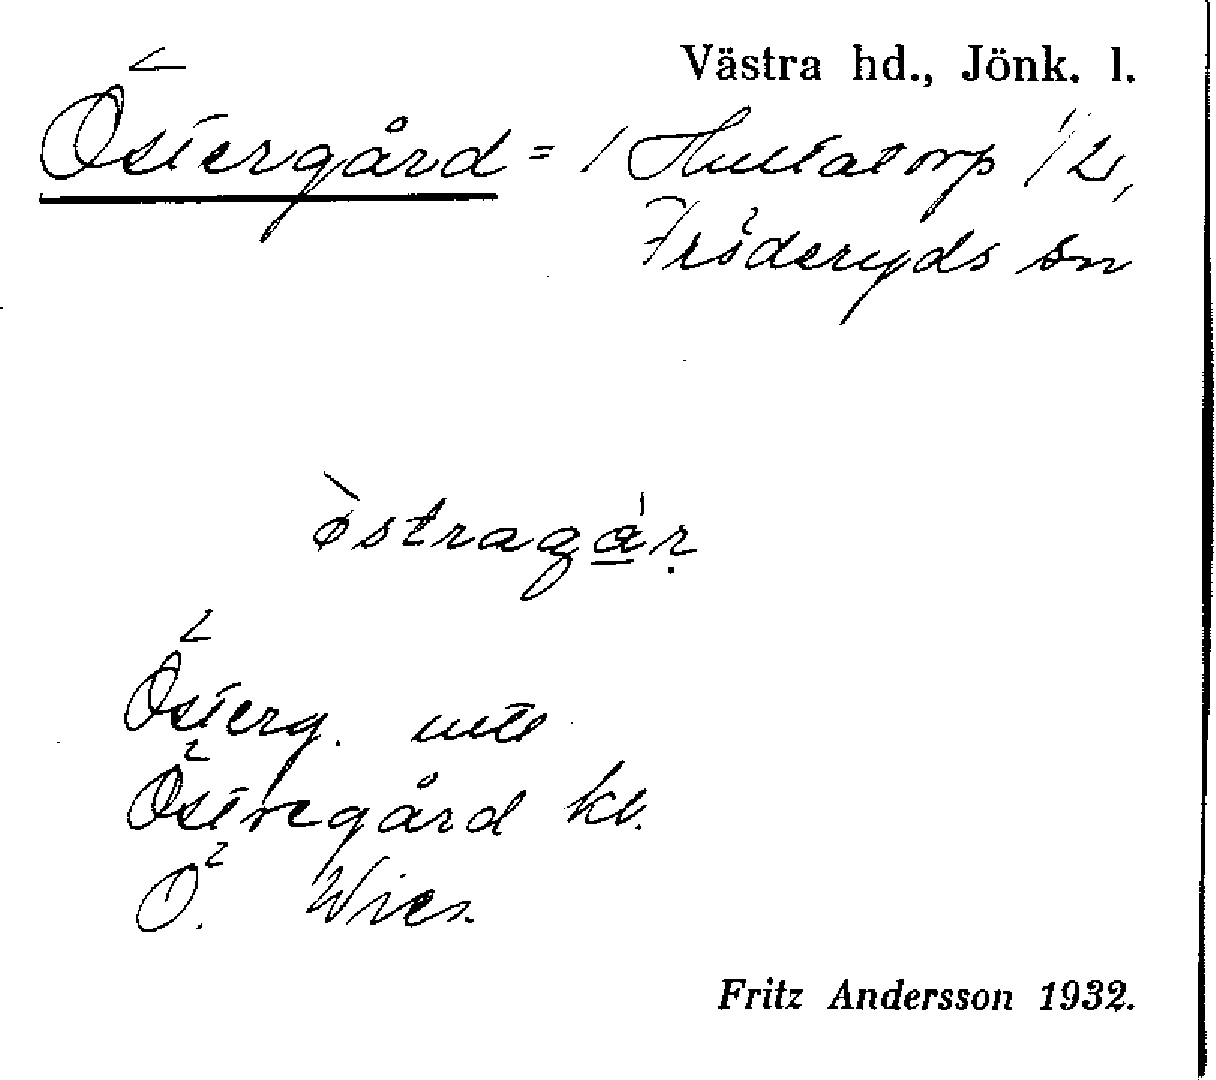 Västra hd., Jönk. l.
Östergård = / Hultatorp 1/2,
Fröderyds sn
östragår
Österg. utt
Östregård kl.
Ö. Wies.
Fritz Andersson 1932.